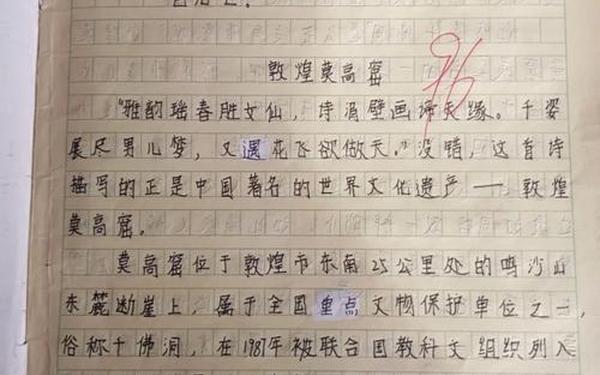 敦煌莫高窟
96
"雅韵瑶春胜女仙，诗涓壁画谛天缘。千姿
展尽男儿梦，又遇花飞欲做天。"没错，这首诗
描写的正是中国著名的世界文化遗产——敦煌
莫高窟。
莫高窟位于敦煌市东南25公里处的鸣沙山
东麓断崖上，属于全国重点文物保护单位之一，
俗称千佛洞，在1987年被联合国教科文组织列入